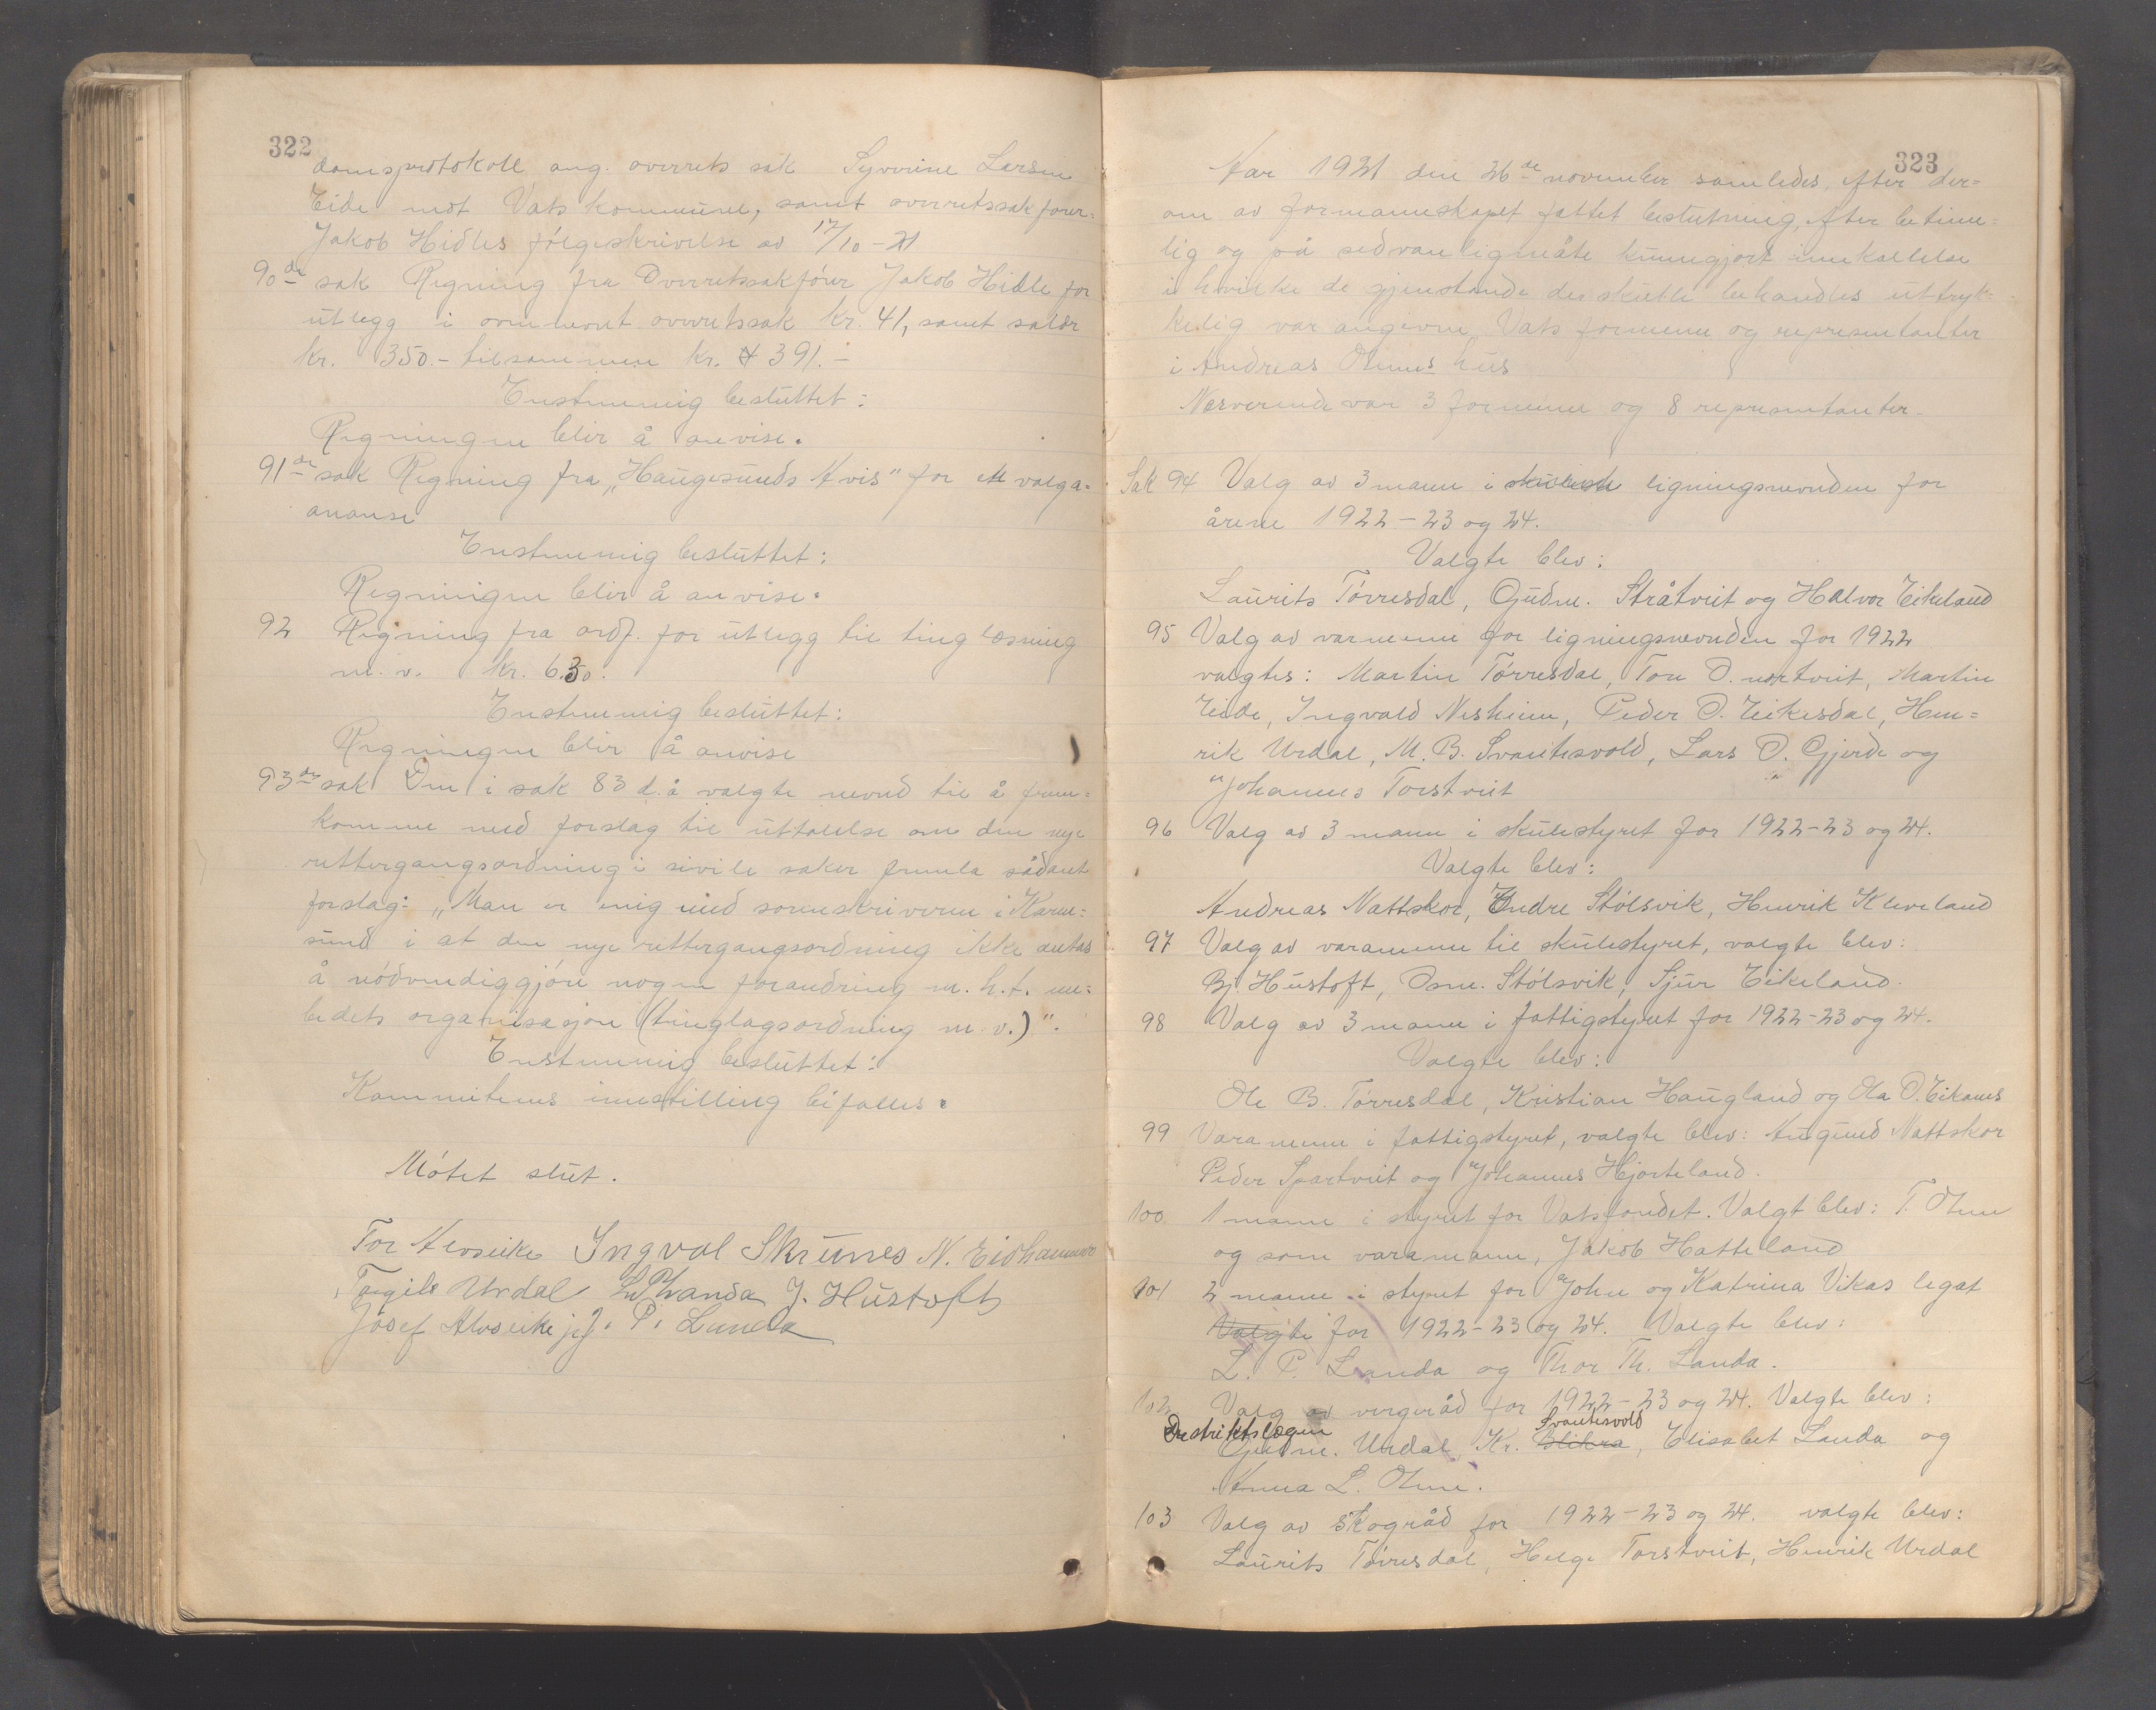 322
domsprotokoll ang. overrets sak Syverine Larsen
Eide mot Vats kommune, samt overretssakfører
Jakob Hidles følgeskrivelse av 17/10-21
90de sak Regning fra Overretssakfører Jakob Hidle for
utlegg i ovennevnt overretssak kr. 41, samt salær
kr. 350.- tilsammen kr. 391.-
Enstemmig besluttet:
Regningen blir å anvise.
91de sak Regning fra „Haugesunds Avis" for ett valga=
ananse
Enstemmig besluttet:
Regningen blir å anvise.
92 Regning fra ordf. for utlegg til tinglæsning
m. v. kr. 6.30.
Enstemmig besluttet:
Regningen blir å anvise
93de sak Den i sak 83 d.å valgte nevnd til å frem=
komme med forslag til uttalelse om den nye
rettergangsordning i sivile saker fremla sådant
forslag: „Man er enig med sorenskriveren i Karm=
sund i at den nye rettergangsordning ikke antas
å nødvendiggjøre nogen forandring m. h. t. em=
bedets organisasjon (tinglagsordning m. v.)".
Enstemmig besluttet:
Kommiteens innstilling bifalles.
Møtet slut.
Tor Alvseike Ingval Skrunes N. Eidhammer
Torgils Urdal L. P. Landa J. Hustoft
Josef Alvseike J. P. Landa
323
Aar 1921 den 26de november samledes, efter der=
om av formannskapet fattet beslutning, efter betime=
lig og på sedvanlig måte kunngjort innkallelse
i hvilke de gjenstande der skulle behandles uttryk=
kelig var angivne, Vats formenn og representanter
i Andreas Ølmes hus
Nærværende var 3 formenn og 8 representanter.
Sak 94 Valg av 3 mann i skulest ligningsnevnden for
årene 1922-23 og 24.
Valgte blev:
Laurits Tørresdal, Gudm. Stråtveit og Halvor Eikeland
95 Valg av varmenn for ligningsnevnden for 1922
valgtes: Martin Tørresdal, Tore O. nortveit, Martin
Eide, Ingvald Nesheim, Peder O. Eikesdal, Hen=
rik Urdal, M. B. Svantesvold, Lars O. Gjerde og
Johannes Torstveit
96 Valg av 3 mann i skulestyret for 1922-23 og 24.
Valgte blev:
Andreas Nattskor, Endre Stølsvik, Henrik Kleveland
97 Valg av varamenn til skulestyret, valgte blev:
Bj. Hustoft, Osm. Stølsvik, Sjur Eikeland.
98 Valg av 3 mann i fattigstyret for 1922-23 og 24.
Valgte blev:
Ole B. Tørresdal, Kristian Haugland og Ola O. Eikanes
99 Varamenn i fattigstyret, valgte blev: Augund Nattskor
Peder Spartveit og Johannes Hjorteland.
100 1 mann i styret for Vatsfondet. Valgt blev: T. Ølme
og som varamann, Jakob Hatteland
101 2 mann i styret for John og Katrina Vikas legat
Valgte for 1922-23 og 24. Valgte blev:
L. P. Landa og Thor Th. Landa.
102 Valg av vergeråd for 1922-23 og 24. Valgte blev:
Destriktslægen Svantesvold
Gudm. Urdal, Kr. Blikra, Elisabet Landa og
Anna L. Ølme.
103 Valg av skogråd for 1922-23 og 24. valgte blev:
Laurits Tørresdal, Helge Torstveit, Henrik Urdal